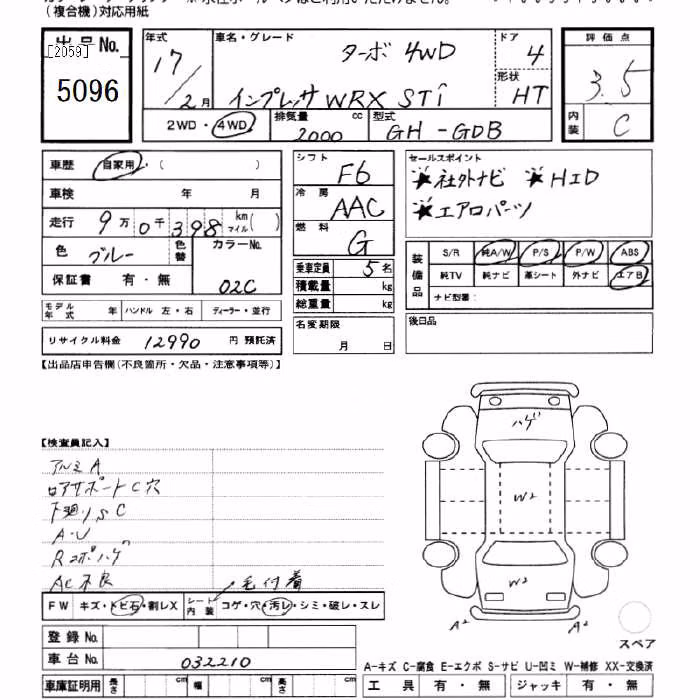 (複合機)対応用紙
出品No.
[2059]
5096
年式
17/2月
車名・グレード
ターボ 4WD
インプレッサ WRX STi
ドア
4
形状
HT
2WD・4WD
排気量
2000
cc
型式
GH-GDB
評価点
3.5
内装
C
車歴 自家用・( )
車検 年 月
走行 9万0千398 km マイル( )
色 ブルー
色替
カラーNo.
02C
保証書 有・無
モデル年式 年
ハンドル 左・右
ディーラー・並行
リサイクル料金 12990 円 預託済
シフト
F6
冷房
AAC
燃料
G
乗車定員 5名
積載量 kg
総重量 kg
名変期限
月 日
セールスポイント
★社外ナビ ★HID
★エアロパーツ
装備品
S/R 純A/W P/S P/W ABS
純TV 純ナビ 革シート 外ナビ エアB
ナビ型番:
後日品
【出品店申告欄(不良箇所・欠品・注意事項等)】
【検査員記入】
アルミA
ロアサポートC穴
下廻りSC
A・U
Rコポハゲ
AC不良
毛付着
FW キズ・トビ石・割レX
シート内装 コゲ・穴・汚レ・シミ・破レ・スレ
登録No.
車台No. 032210
車庫証明用 長さ cm 幅 cm 高さ cm
ハゲ
W2
W2
A2 A2
スペア
A-キズ C-腐食 E-エクボ S-サビ U-凹ミ W-補修 XX-交換済
工具 有・無 ジャッキ 有・無